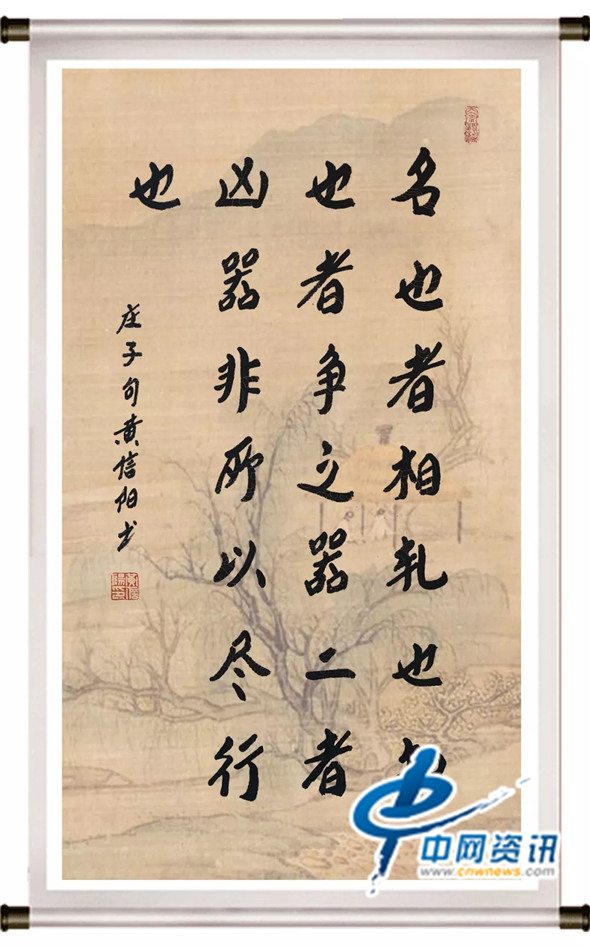 名也者相轧也知
也者争之器二者
凶器非所以尽行
也
庄子句黄信阳书
中网资讯
www.cnwnews.com